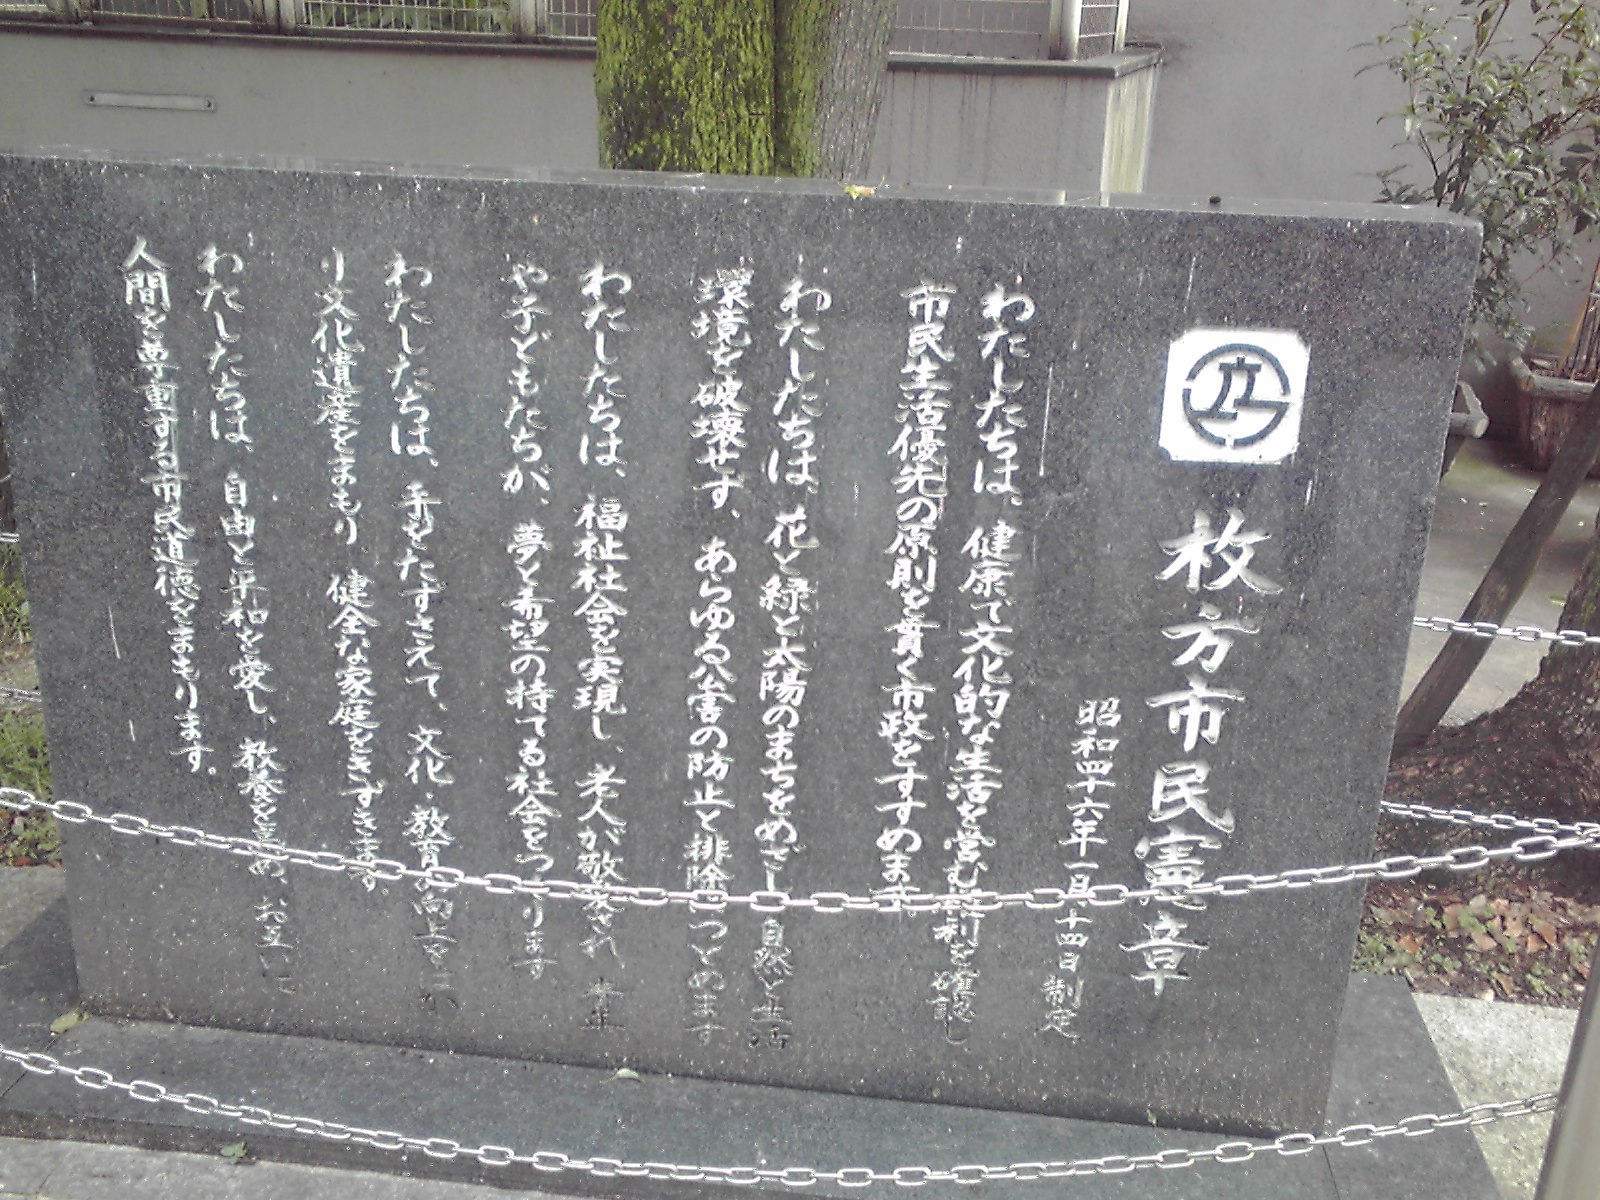 枚方市民憲章
昭和四十六年一月十四日制定
わたしたちは、健康で文化的な生活を営む権利を確認し
市民生活優先の原則を貫く市政をすすめます。
わたしたちは、花と緑と太陽のまちをめざし 自然と生活
環境を破壊せず、あらゆる公害の防止と排除につとめます
わたしたちは、福祉社会を実現し、老人が敬愛され 青年
や子どもたちが、夢と希望の持てる社会をつくります
わたしたちは、手をたずさえて、文化・教育の向上をはか
り文化遺産をまもり 健全な家庭をきずきます。
わたしたちは、自由と平和を愛し、教養を高め、お互いに
人間を尊重する市民道徳をまもります。